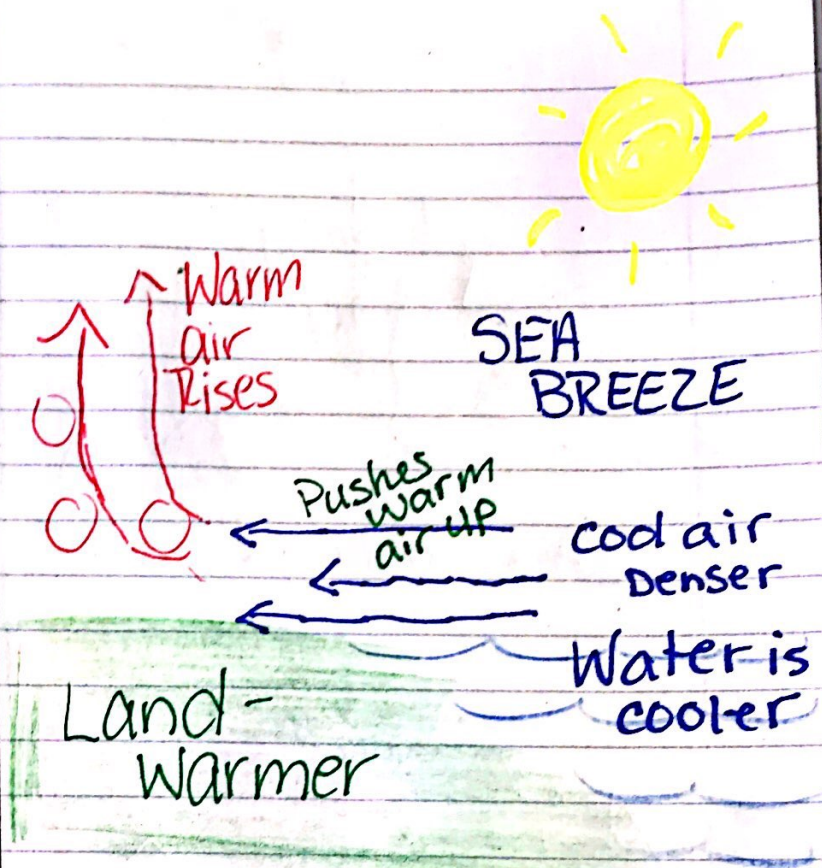 Warm
air
Rises
SEA
BREEZE
Pushes
warm
air up
cool air
Denser
Water is
cooler
Land-
Warmer